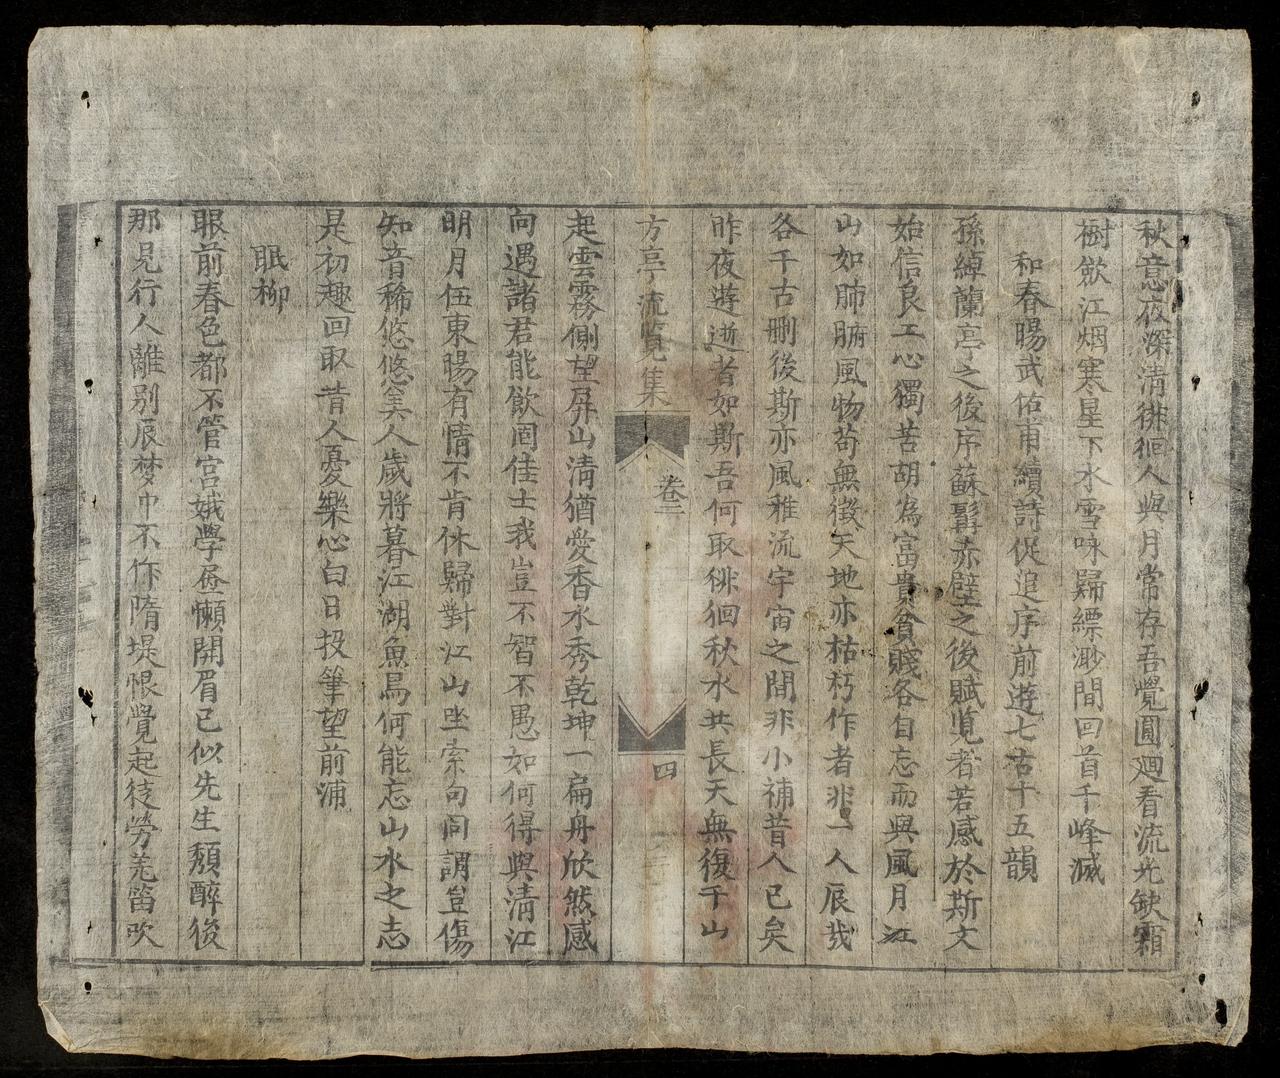 秋意夜深清徘徊人與月常存吾覺圓廻看流光缺霜
樹飲江烟寒星下水雪咏歸縹渺間回首千峰滅
和春賜武佑甫續詩促追序前遊七古十五韻
孫綽蘭亭之後序蘇髯赤壁之後賦覽者若感於斯文
始信良工心獨苦胡為富貴貧賤各自忘而與風月江
山如肺腑風物苟無徵天地亦枯朽作者非一人辰哉
各千古刪後斯亦風雅流宇宙之間非小補昔人已矣
昨夜遊逝者如斯吾何取徘徊秋水共長天無復千山
方亭流覽集
卷三
四
起雲霧側望屏山清猶愛香水秀乾坤一扁舟欣然感
向遇諸君能飲固佳士我豈不智不愚如何得與清江
明月伍東暘有情不肯休歸對江山坐索句同謂豈傷
知音稀悠悠美人歲將暮江湖魚鳥何能忘山水之志
是初趣回取昔人憂樂心白日投筆望前浦
眠柳
眼前春色都不管宮娥學昼懶開眉已似先生頹醉後
那見行人離別辰梦中不作隋堤恨覺起徒勞羌笛吹